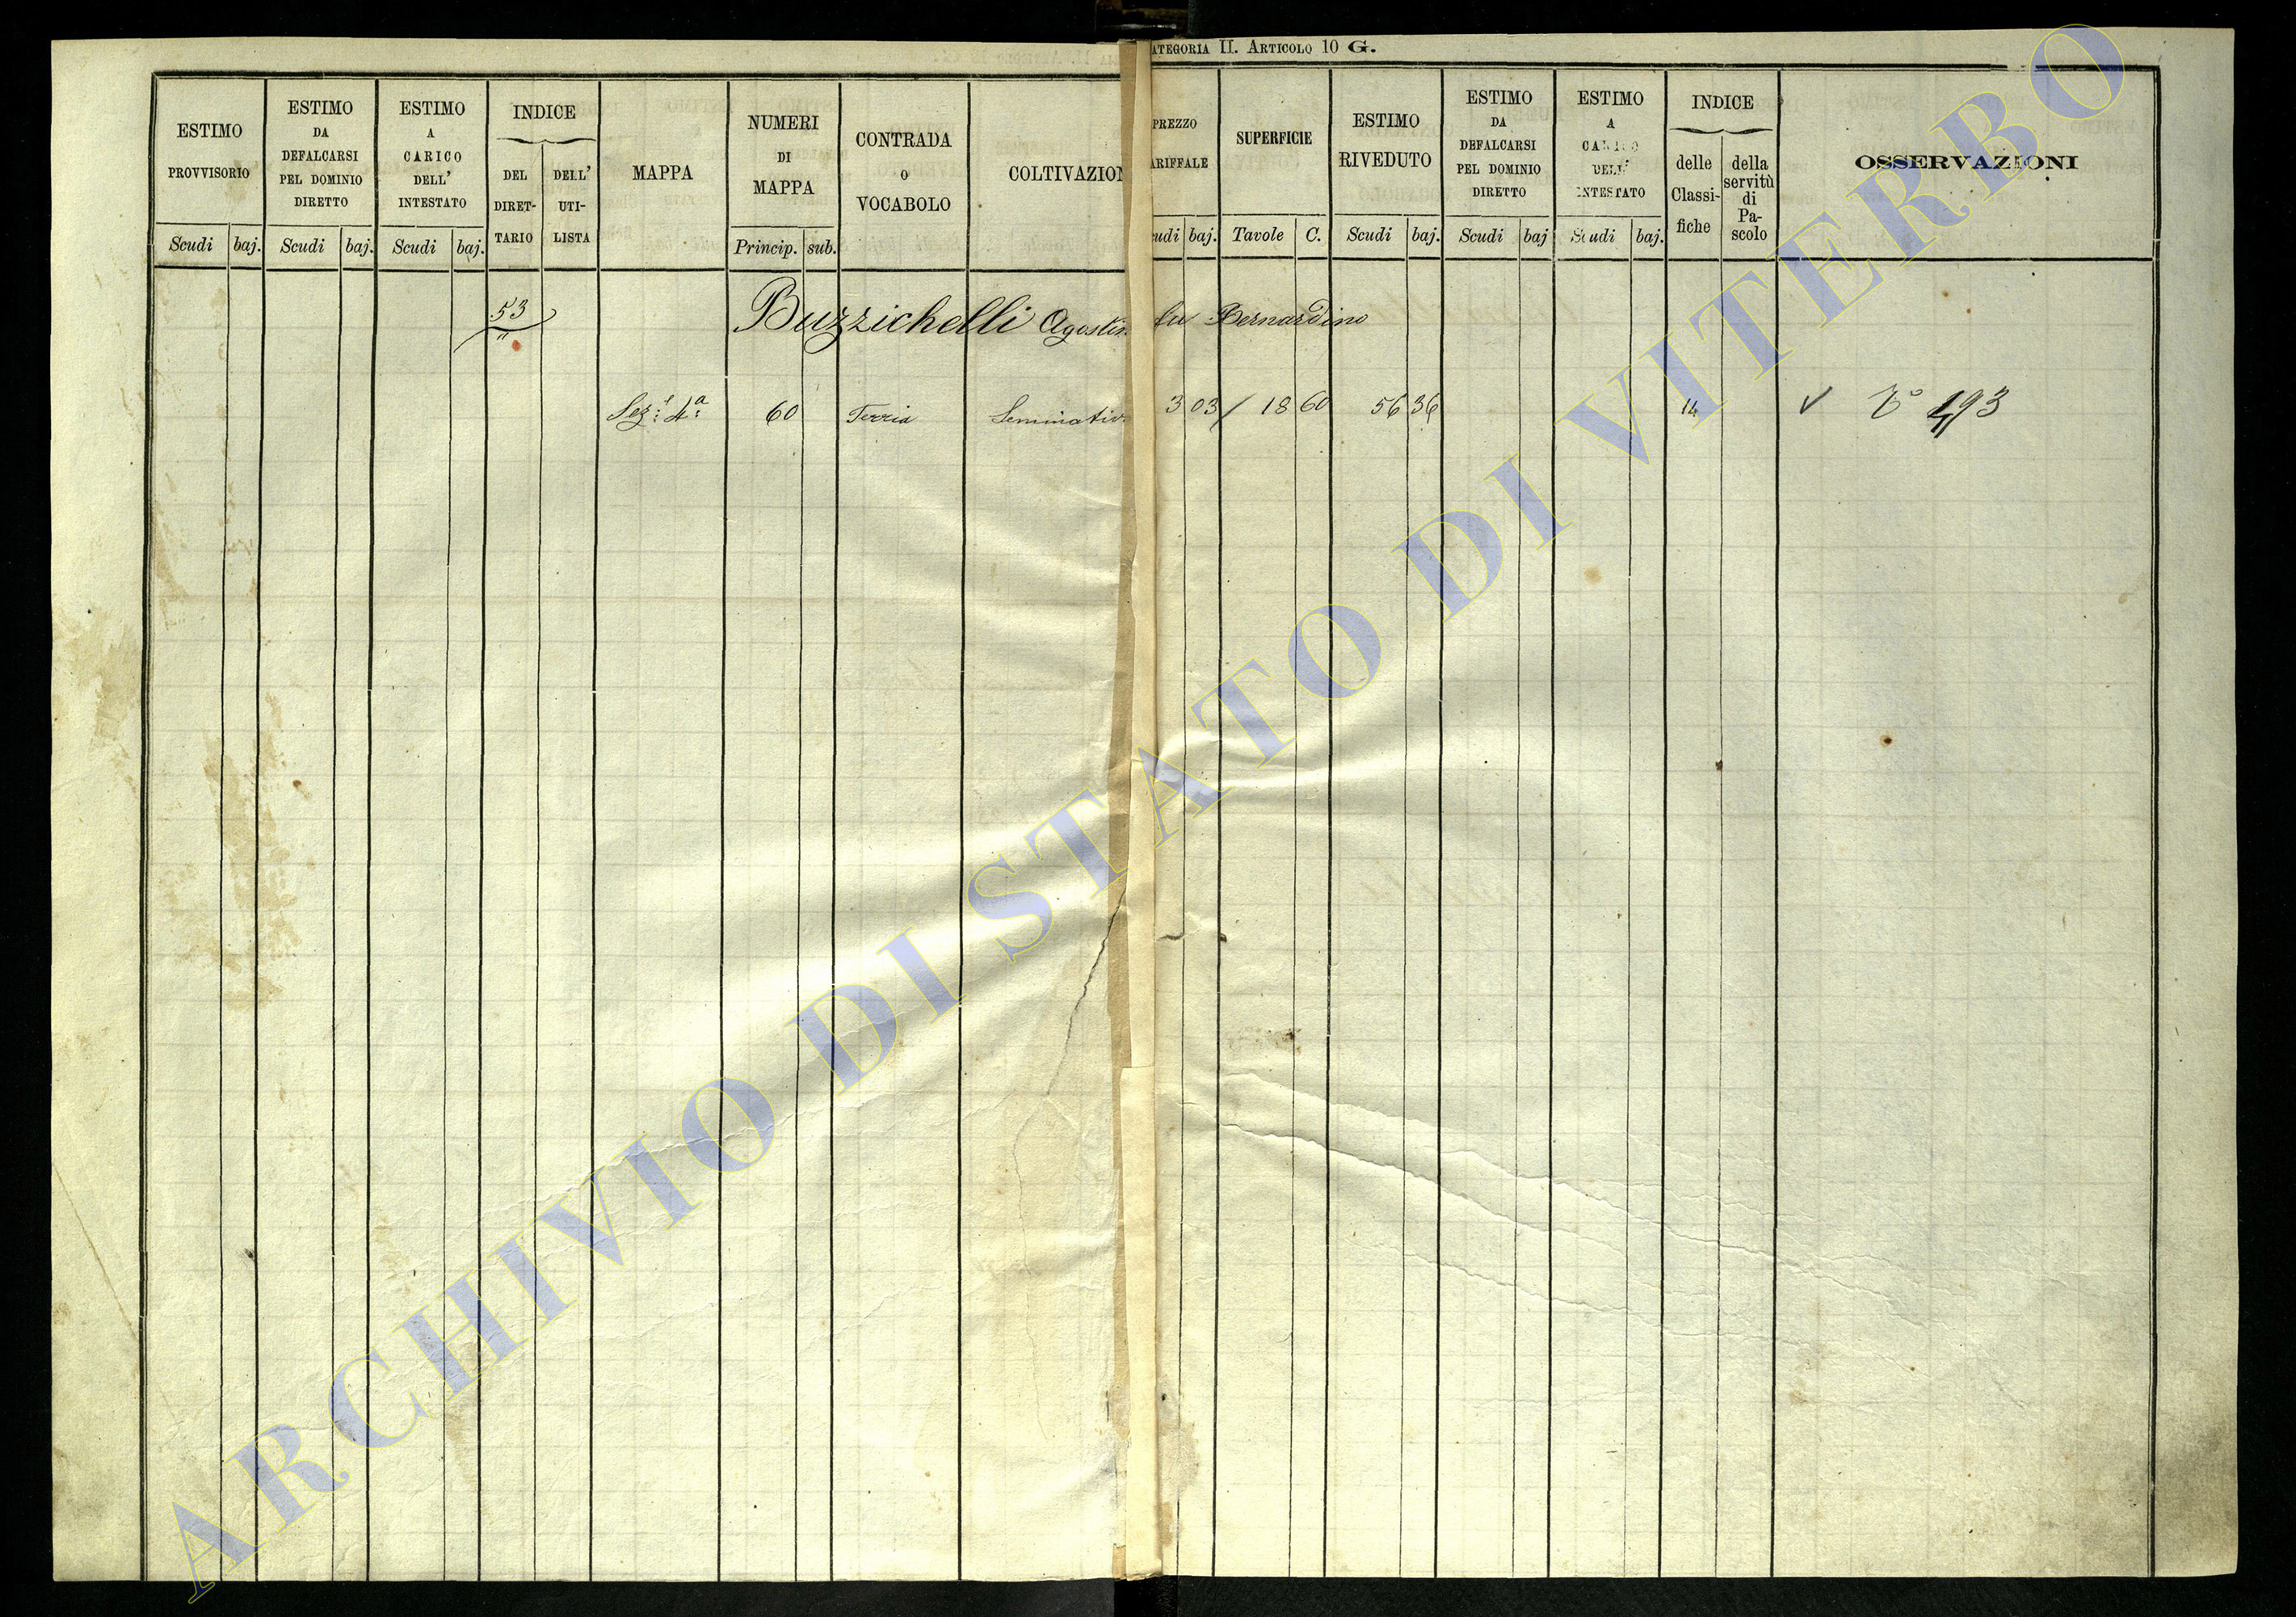 CATEGORIA II. ARTICOLO 10 G.
ESTIMO PROVVISORIO
Scudi baj.
ESTIMO DA DEFALCARSI PEL DOMINIO DIRETTO
Scudi baj.
ESTIMO A CARICO DELL' INTESTATO
Scudi baj.
INDICE
DEL DIRET-TARIO
DELL' UTI-LISTA
MAPPA
NUMERI DI MAPPA
Princip. sub.
CONTRADA O VOCABOLO
COLTIVAZION
PREZZO ARIFFALE
udi baj.
SUPERFICIE
Tavole C.
ESTIMO RIVEDUTO
Scudi baj.
ESTIMO DA DEFALCARSI PEL DOMINIO DIRETTO
Scudi baj
ESTIMO A CARICO DELL' INTESTATO
Scudi baj.
INDICE
delle Classi-fiche
della servitù di Pa-scolo
OSSERVAZIONI
53 Buzzichelli Agostin fu Bernardino
Sez: 4ª 60 Terria Seminativ 3 03 18 60 56 36 14 V° 493
ARCHIVIO DI STATO DI VITERBO